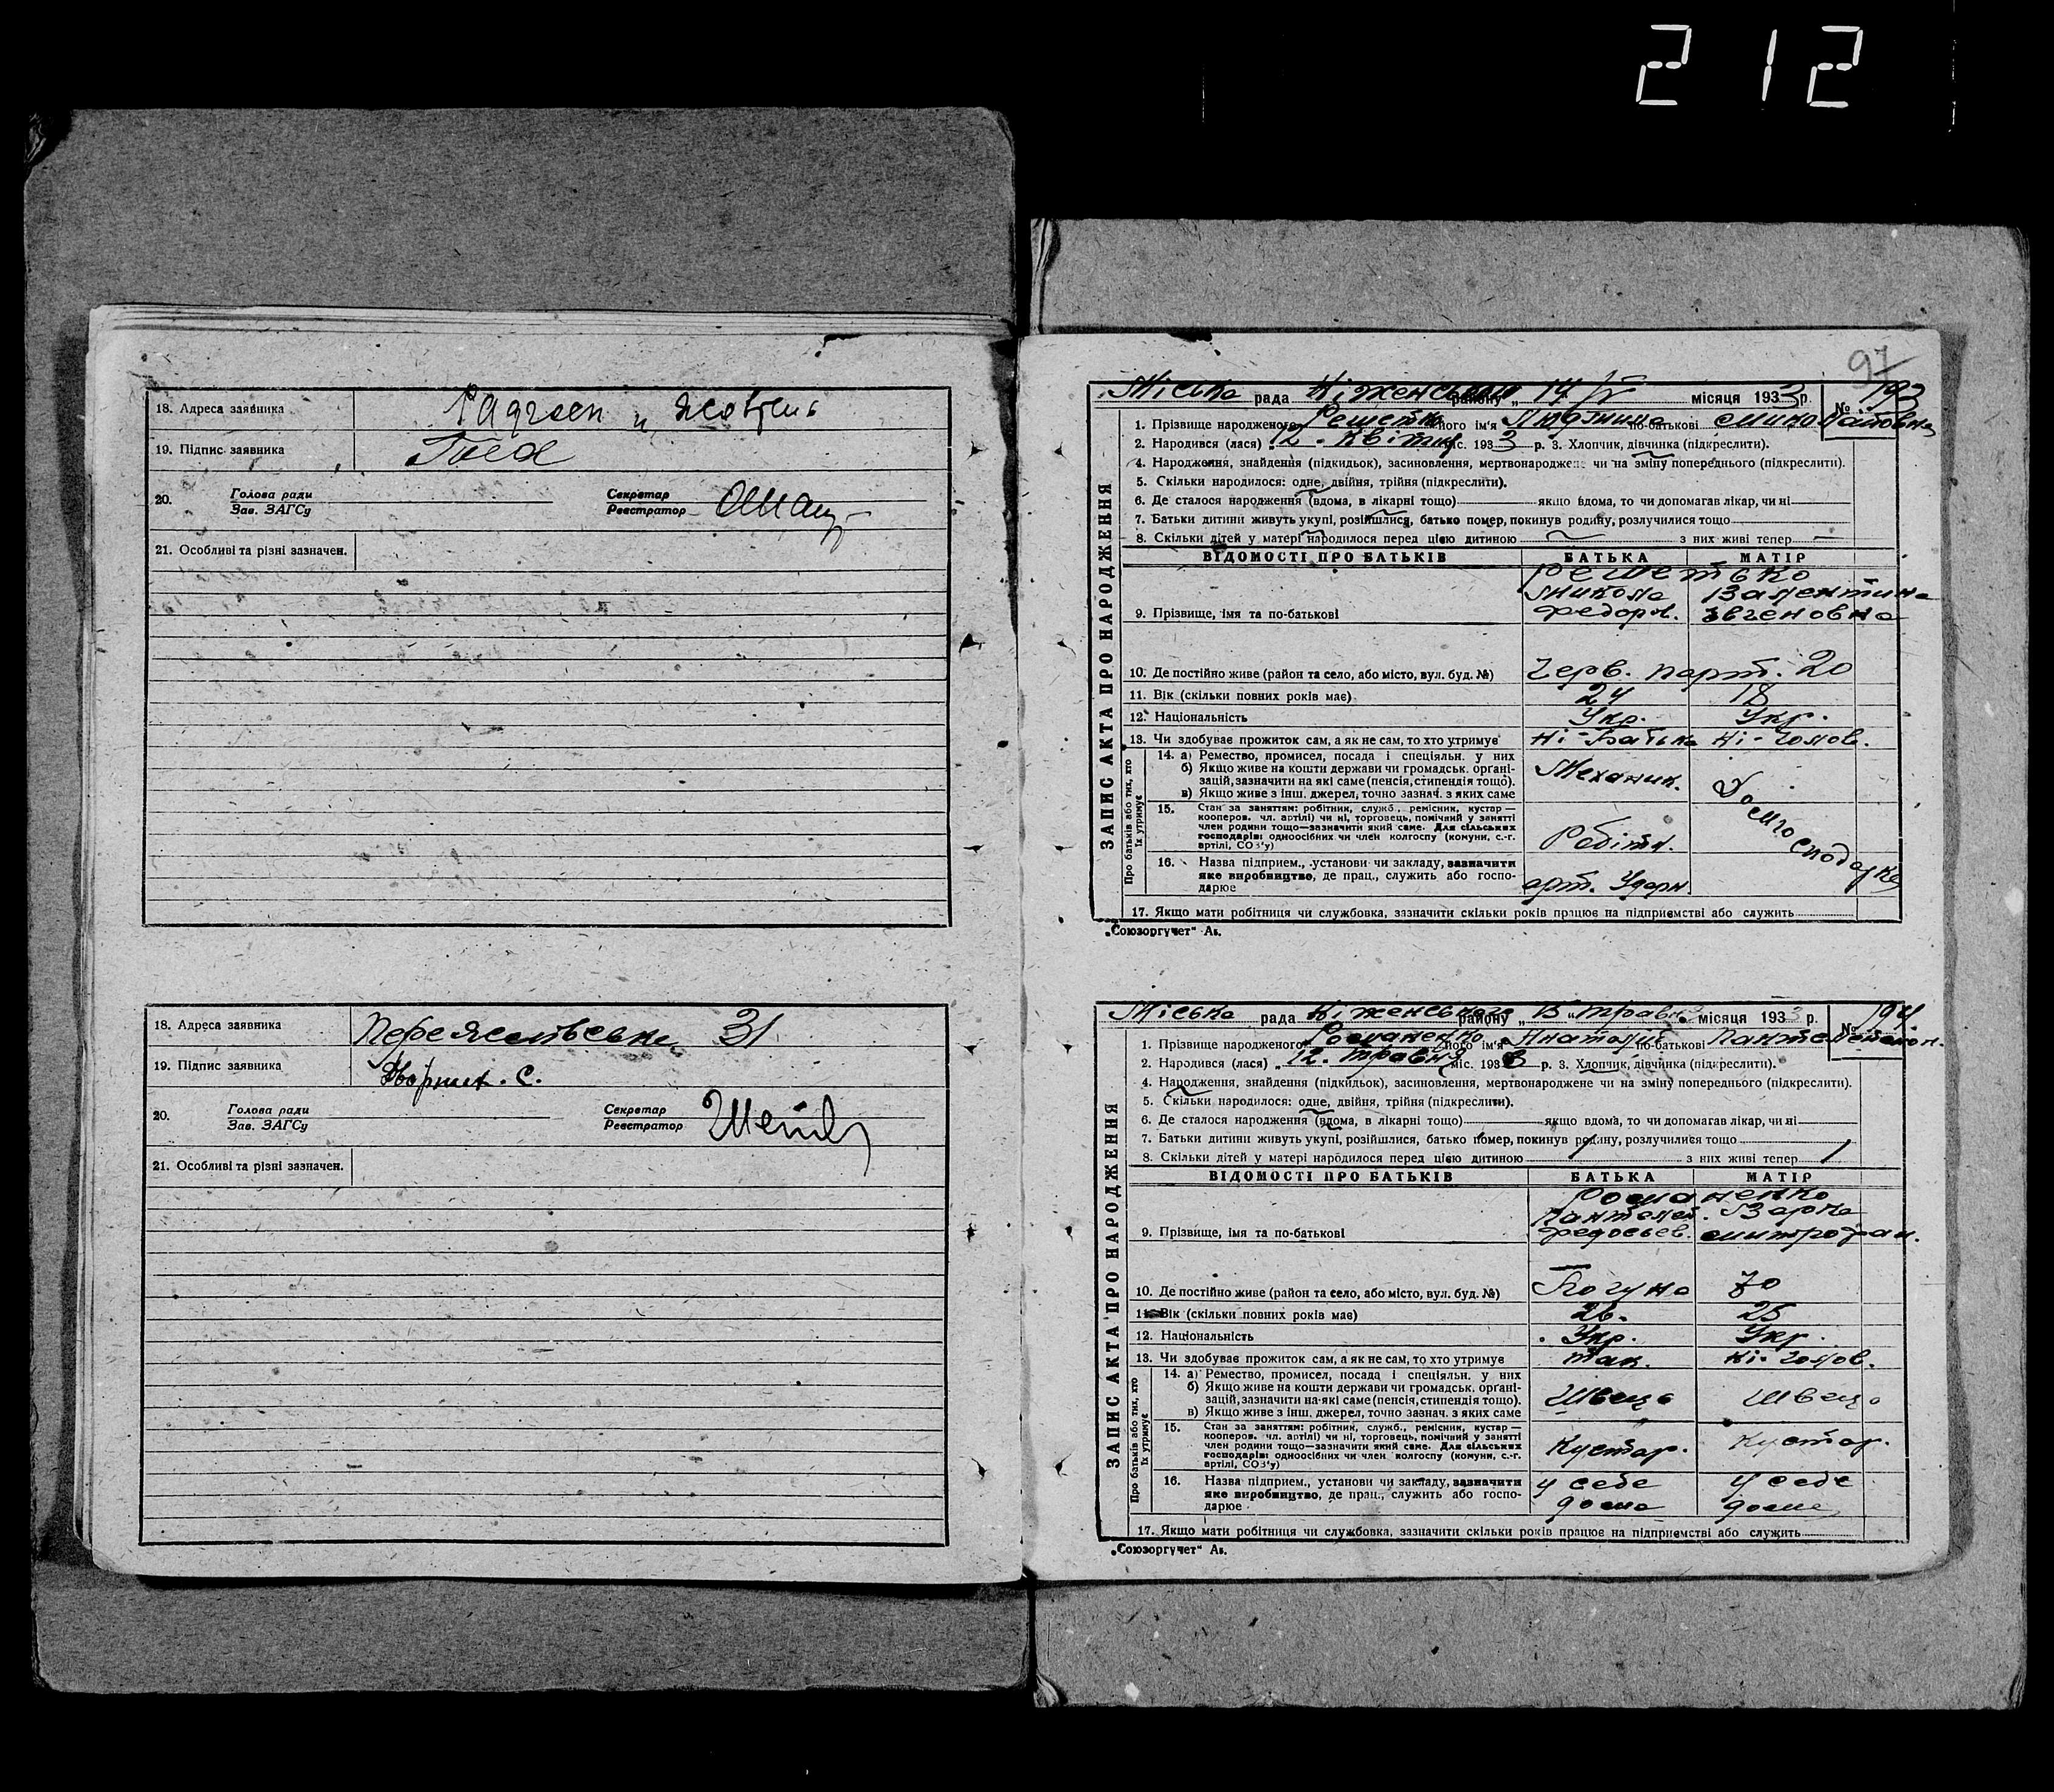 212
18. Адреса заявника
19. Підпис заявника
20. Голова ради Зав. ЗАГСу Секретар Реєстратор
21. Особливі та різні зазначен.
18. Адреса заявника 31
19. Підпис заявника
20. Голова ради Зав. ЗАГСу Секретар Реєстратор
21. Особливі та різні зазначен.
97
ЗАПИС АКТА ПРО НАРОДЖЕННЯ
Міська рада Ніженського району „ 14 / V місяця 1933 р. № 193
1. Прізвище народженого Решетько його ім'я Людмила по-батькові Миколаївна
2. Народився (лася) „ 12 . квітн міс. 1933 р. 3. Хлопчик, дівчинка (підкреслити).
4. Народження, знайдення (підкидьок), засиновлення, мертвонароджене чи на зміну попереднього (підкреслити).
5. Скільки народилося: одне, двійня, трійня (підкреслити).
6. Де сталося народження (вдома, в лікарні тощо) якщо вдома, то чи допомагав лікар, чи ні
7. Батьки дитини живуть укупі, розійшлися, батько помер, покинув родину, розлучилися тощо
8. Скільки дітей у матері народилося перед цією дитиною — з них живі тепер —
ВІДОМОСТІ ПРО БАТЬКІВ БАТЬКА МАТІР
Решетько
Микола Валентина
9. Прізвище, імя та по-батькові Федоров. Євгеновна
10. Де постійно живе (район та село, або місто, вул. буд. №) Черв. парт. 20
11. Вік (скільки повних років має) 24 18
12. Національність Укр. Укр.
13. Чи здобуває прожиток сам, а як не сам, то хто утримує ні - батька ні - чолов.
Про батьків або тих, хто їх утримує
14. а) Ремество, промисел, посада і спеціяльн. у них
б) Якщо живе на кошти держави чи громадськ. організацій, зазначити на які саме (пенсія, стипендія тощо). Механик. Домгосподарка
в) Якщо живе з інш. джерел, точно зазнач. з яких саме
15. Стан за заняттям: робітник, служб., ремісник, кустар —
кооперов. чл. артілі) чи ні, торговець, помічний у занятті
член родини тощо—зазначити який саме. Для сільських
господарів: одноосібних чи член колгоспу (комуни, с.-г.
артілі, СОЗ'у) Робітн.
16. Назва підприєм., установи чи закладу, зазначити
яке виробництво, де прац., служить або госпо-
дарює арт. Ударн
17. Якщо мати робітниця чи службовка, зазначити скільки років працює на підприємстві або служить
„Союзоргучет"
ЗАПИС АКТА ПРО НАРОДЖЕННЯ
Міська рада Ніженського району „ травн місяця 1933 р. № 194.
1. Прізвище народженого Романенко його ім'я Анатолій по-батькові
2. Народився (лася) „ 12. травня міс. 1933 р. 3. Хлопчик, дівчинка (підкреслити).
4. Народження, знайдення (підкидьок), засиновлення, мертвонароджене чи на зміну попереднього (підкреслити).
5. Скільки народилося: одне, двійня, трійня (підкреслити).
6. Де сталося народження (вдома, в лікарні тощо) якщо вдома, то чи допомагав лікар, чи ні
7. Батьки дитини живуть укупі, розійшлися, батько помер, покинув родину, розлучилися тощо
8. Скільки дітей у матері народилося перед цією дитиною 1 з них живі тепер 1
ВІДОМОСТІ ПРО БАТЬКІВ БАТЬКА МАТІР
Романенко
Пантелей. Варка
9. Прізвище, імя та по-батькові Федосьев. Митрофан.
10. Де постійно живе (район та село, або місто, вул. буд. №) Богуна 70
11. Вік (скільки повних років має) 26. 25
12. Національність Укр. Укр.
13. Чи здобуває прожиток сам, а як не сам, то хто утримує так. ні - чолов.
Про батьків або тих, хто їх утримує
14. а) Ремество, промисел, посада і спеціяльн. у них
б) Якщо живе на кошти держави чи громадськ. організацій, зазначити на які саме (пенсія, стипендія тощо). Швець Швець
в) Якщо живе з інш. джерел, точно зазнач. з яких саме
15. Стан за заняттям: робітник, служб., ремісник, кустар —
кооперов. чл. артілі) чи ні, торговець, помічний у занятті
член родини тощо—зазначити який саме. Для сільських
господарів: одноосібних чи член колгоспу (комуни, с.-г.
артілі, СОЗ'у) Кустар. Кустар.
16. Назва підприєм., установи чи закладу, зазначити
яке виробництво, де прац., служить або госпо-
дарює у себе дома у себе дома
17. Якщо мати робітниця чи службовка, зазначити скільки років працює на підприємстві або служить
„Союзоргучет"